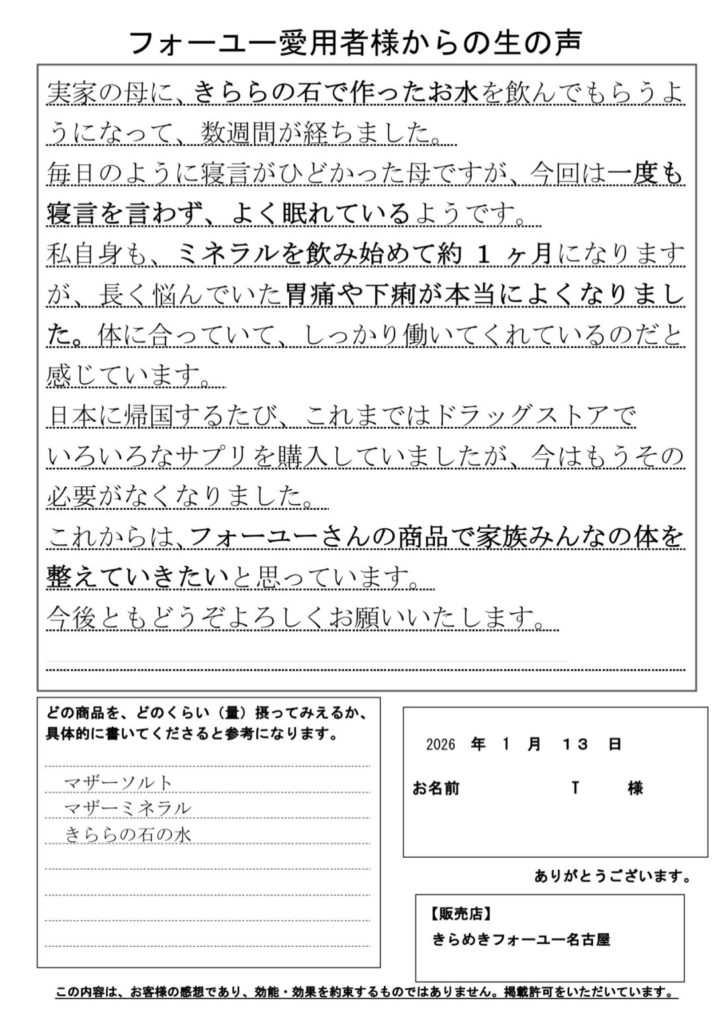 フォーユー愛用者様からの生の声
実家の母に、きららの石で作ったお水を飲んでもらうよ
うになって、数週間が経ちました。
毎日のように寝言がひどかった母ですが、今回は一度も
寝言を言わず、よく眠れているようです。
私自身も、ミネラルを飲み始めて約 1 ヶ月になります
が、長く悩んでいた胃痛や下痢が本当によくなりまし
た。体に合っていて、しっかり働いてくれているのだと
感じています。
日本に帰国するたび、これまではドラッグストアで
いろいろなサプリを購入していましたが、今はもうその
必要がなくなりました。
これからは、フォーユーさんの商品で家族みんなの体を
整えていきたいと思っています。
今後ともどうぞよろしくお願いいたします。
どの商品を、どのくらい（量）摂ってみえるか、
具体的に書いてくださると参考になります。
マザーソルト
マザーミネラル
きららの石の水
2026 年 1 月 １３ 日
お名前 T 様
ありがとうございます。
【販売店】
きらめきフォーユー名古屋
この内容は、お客様の感想であり、効能・効果を約束するものではありません。掲載許可をいただいています。